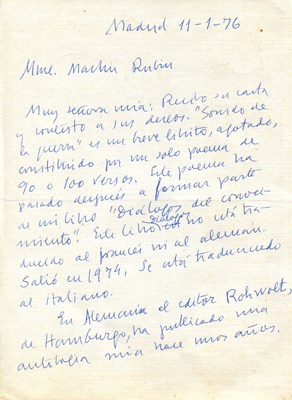 Madrid 11-1-76
Mme. Rubin
Muy señora mía: Recibo su carta
y contesto a sus deseos. "Sonido de
la guerra" es un breve librito, agotado,
constituido por un solo poema de
90 o 100 versos. Este poema ha
pasado después a formar parte
de mi libro "Diálogos del conoci-
miento". Este libro Diálogos no está tra-
ducido al francés ni al alemán.
Salió en 1974. Se está traduciendo
al italiano.
En Alemania el editor Rohwolt,
de Hamburgo, ha publicado una
antología mía hace unos años.